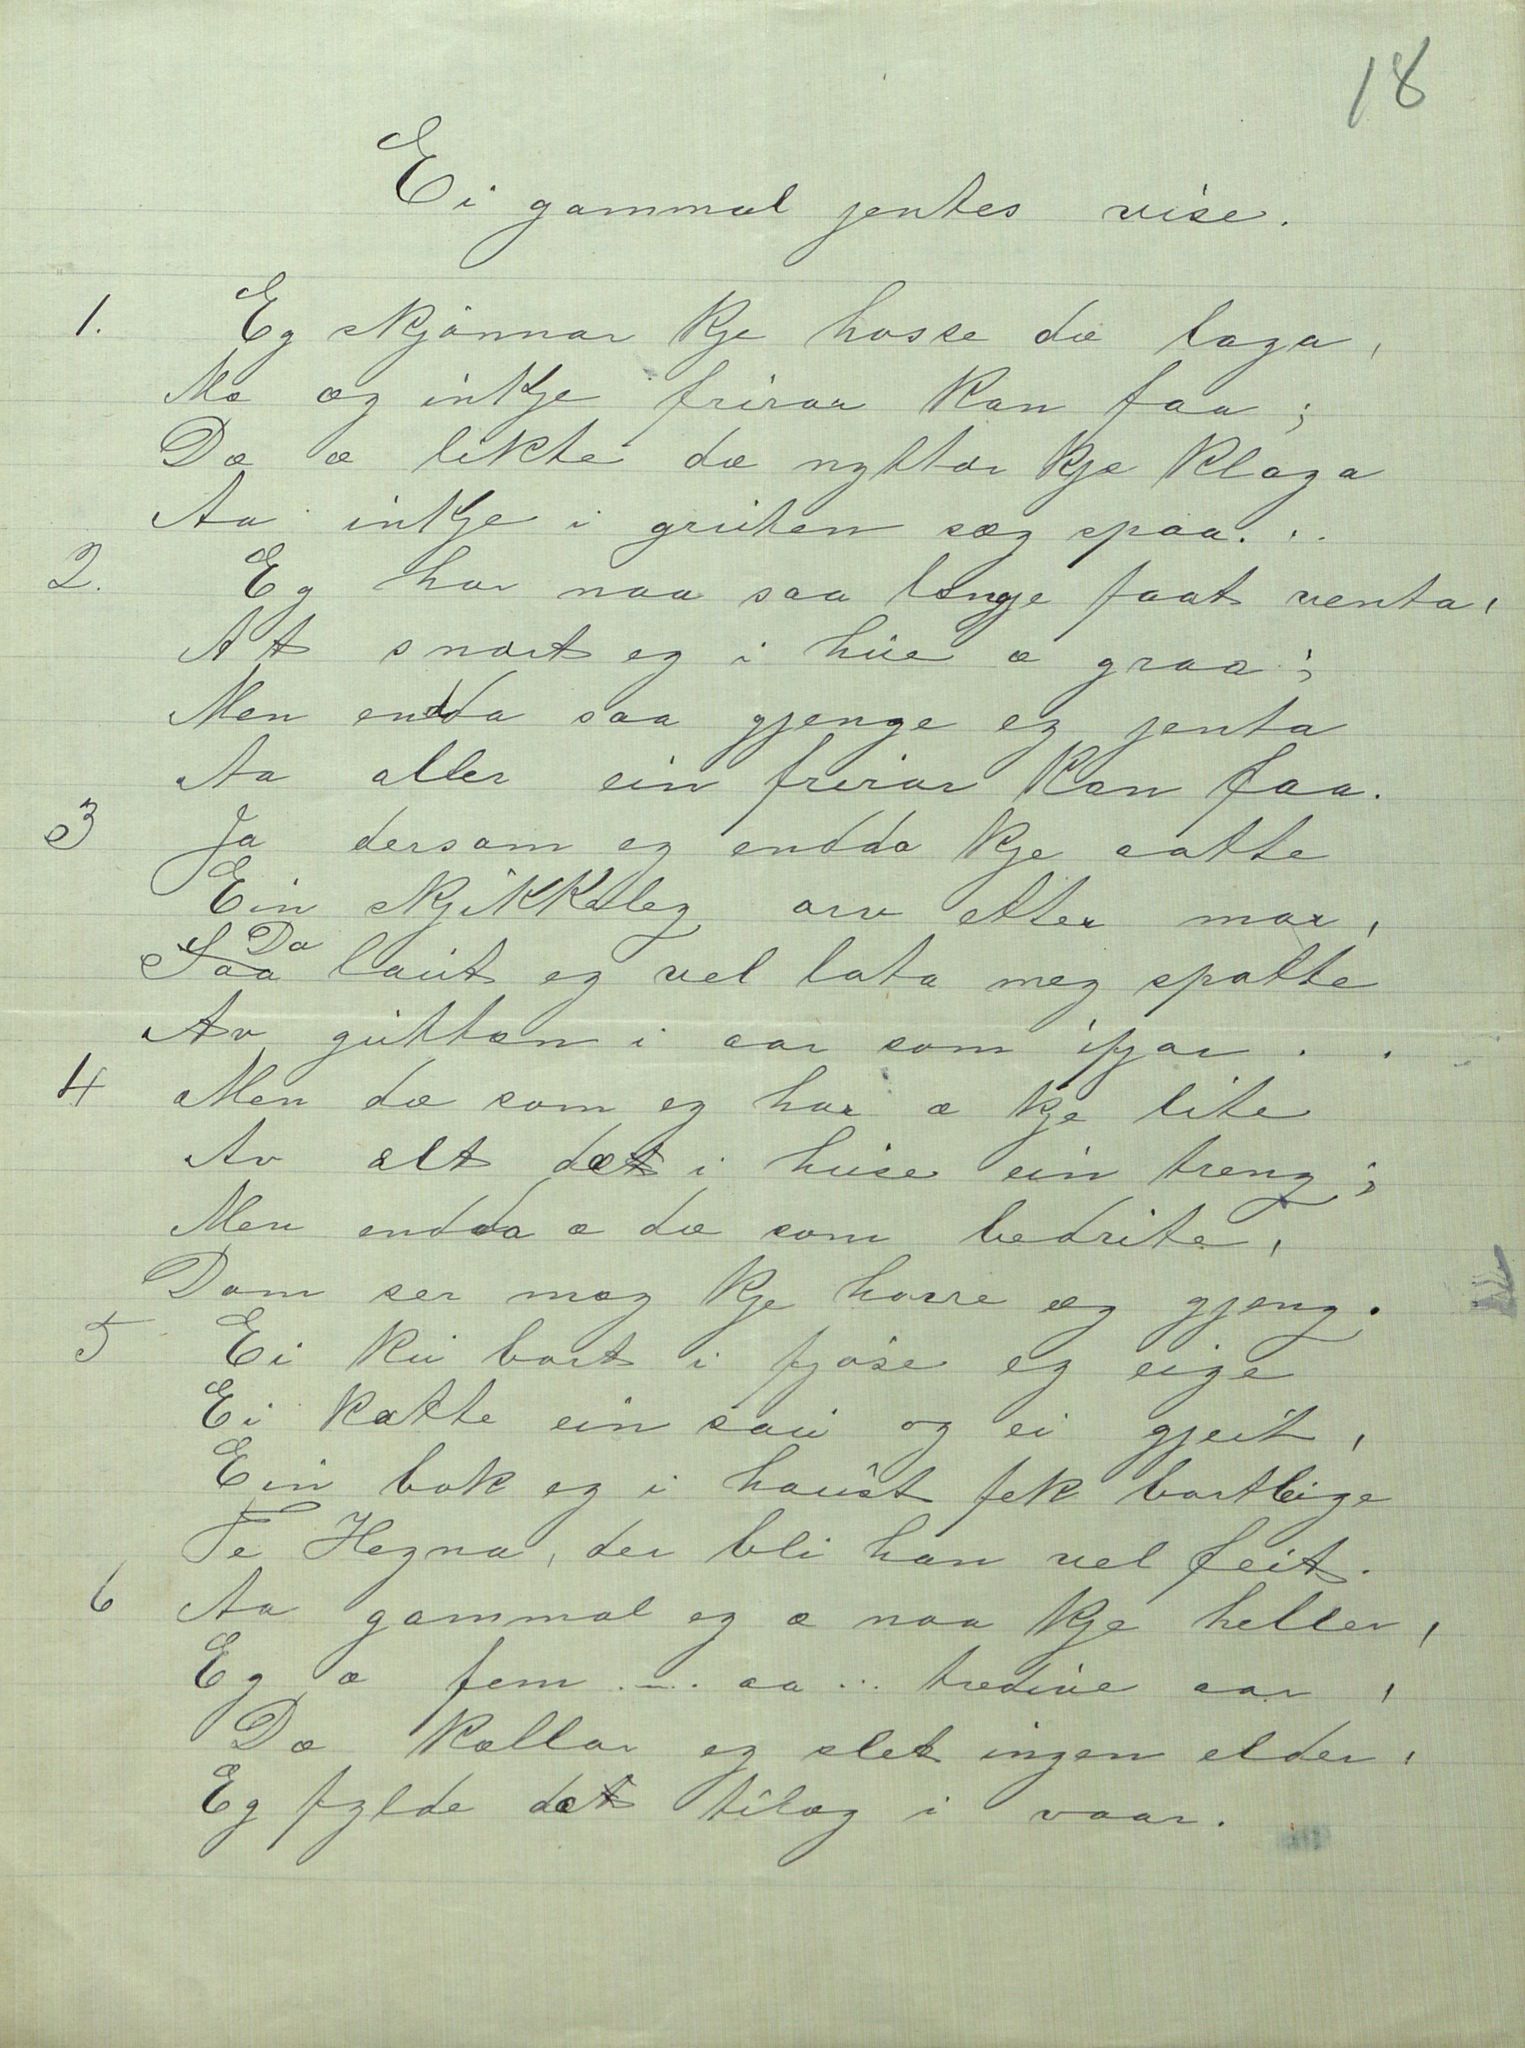 18
Ei gammal jentes vise.
1. Eg skjønnar kje hosse dæ laga,
Mæ æg inkje friraa kan faa;
Dæ æ likte dæ nyttar kje klaga
Aa inkje i gruten sæg spaa...
2. Eg har naa saa længje faat venta,
At snart eg i hue æ graa;
Men endda saa gjenge eg jenta
Aa aller ein frirar kan faa.
3 Ja dersom eg endda kje aatte
Ein skjikkeleg arv etter mor,
Saa Da laut eg vel lata meg spotte
Av guttan i aar som ifjor..
4 Men dæ som eg har æ kje lite
Av alt dæt i huse ein treng;
Men endda æ dæ som bedrite,
Dom ser mæg kje harre æg gjeng.
5 Ei ku bort i fjøse eg eige
Ei katte ein sau og ei gjeit,
Ein bok eg i haust fek bortleige
Te Hegna, der bli han vel feit.
6 Aa gammal eg æ naa kje heller,
Eg æ fem .... aa ... tredive aar,
Dæ kallar eg slet ingen elder,
Eg fylde dæt tilæg i vaar.